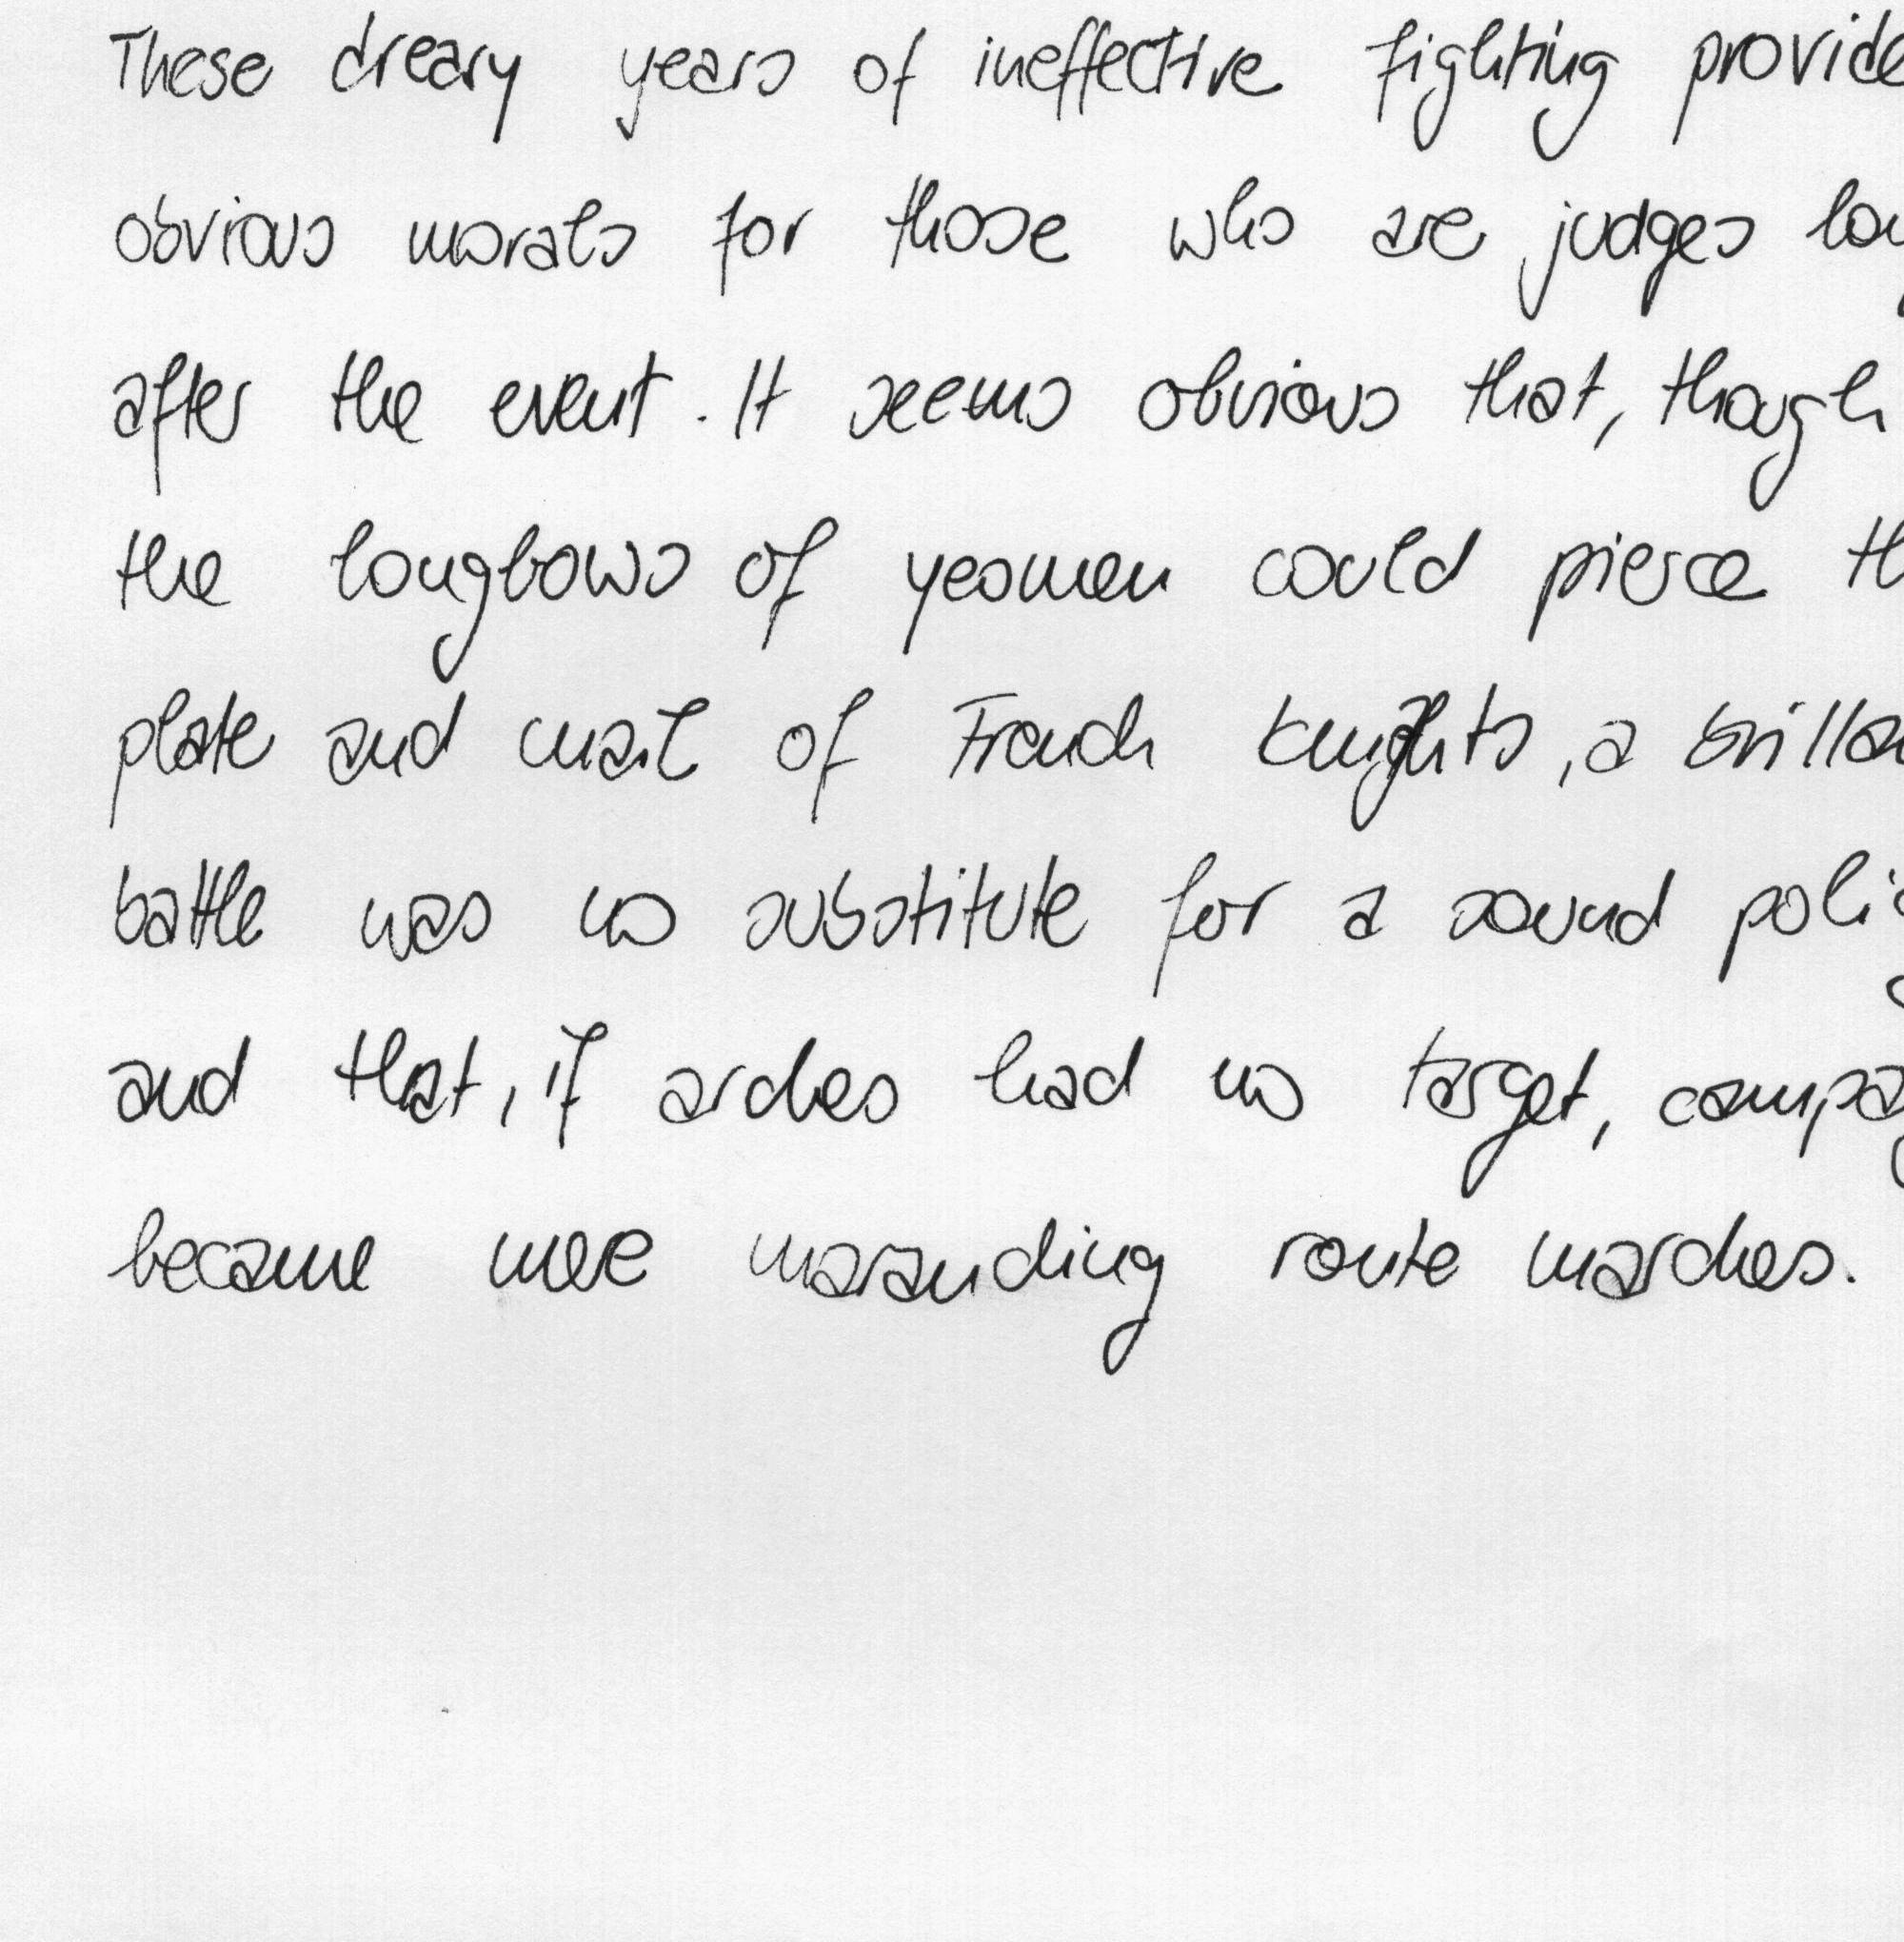 These dreary years of ineffective fighting provide
obvious morals for those who are judges long
after the event. It seems obvious that, though
the longbows of yeomen could pierce th
plate and mail of French knights, a brillan
battle was no substitute for a sound polic
and that, if arches had no target, campa
became mere marauding route marches.